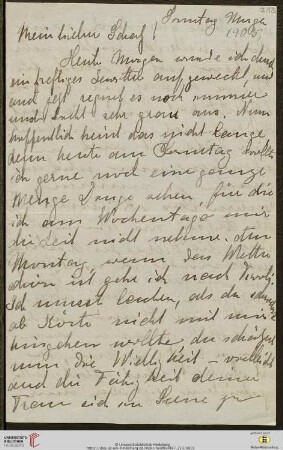 Sonntag Morgen
1906
Mein lieber Schatz!
Heute Morgen wurde ich durch
ein heftiges Gewitter aufgeweckt und
und jetzt regnet es noch immer
und sieht sehr grau aus. Nun
hoffentlich heint das nicht lange
denn heute am Sonntag wollte
ich gerne noch eine ganze
Menge Dinge sehen, für die
ich am Wochentage mir
die Zeit nicht nehme. Am
Montag, wenn das Wetter
ist gehe ich nach Tivoli.
Ich musst lachen, als du
ab nicht mit mir
hingehen wollte, du
nun die vielleicht
und die Fähigkeit deiner
Frau sich in Scene zu